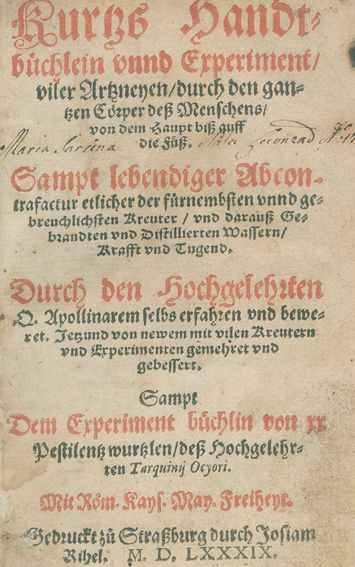 Kurtzs Handt-
büchlein vnnd Experiment/
viler Artzneyen/durch den gan-
tzen Cörper deß Menschens/
von dem Haupt biß auff
die Füß.
Maria
Sampt lebendiger Abcon-
trafactur etlicher der fürnembsten vnnd ge-
breuchlichsten Kreuter/ vnd darauß Ge-
brandten vnd Distillierten Wassern/
Krafft vnd Tugend.
Durch den Hochgelehrten
Q. Apollinarem selbs erfahren vnd bewe-
ret. Jetzund von newem mit vilen Kreutern
vnd Experimenten gemehret vnd
gebessert.
Sampt
Dem Experiment büchlin von xx
Pestilentz wurtzlen/deß Hochgelehr-
ten Tarquinij Ocyori.
Mit Röm. Kays. May. Freiheyt.
Gedruckt zů Straßburg durch Josiam
Rihel. M. D. LXXXIX.